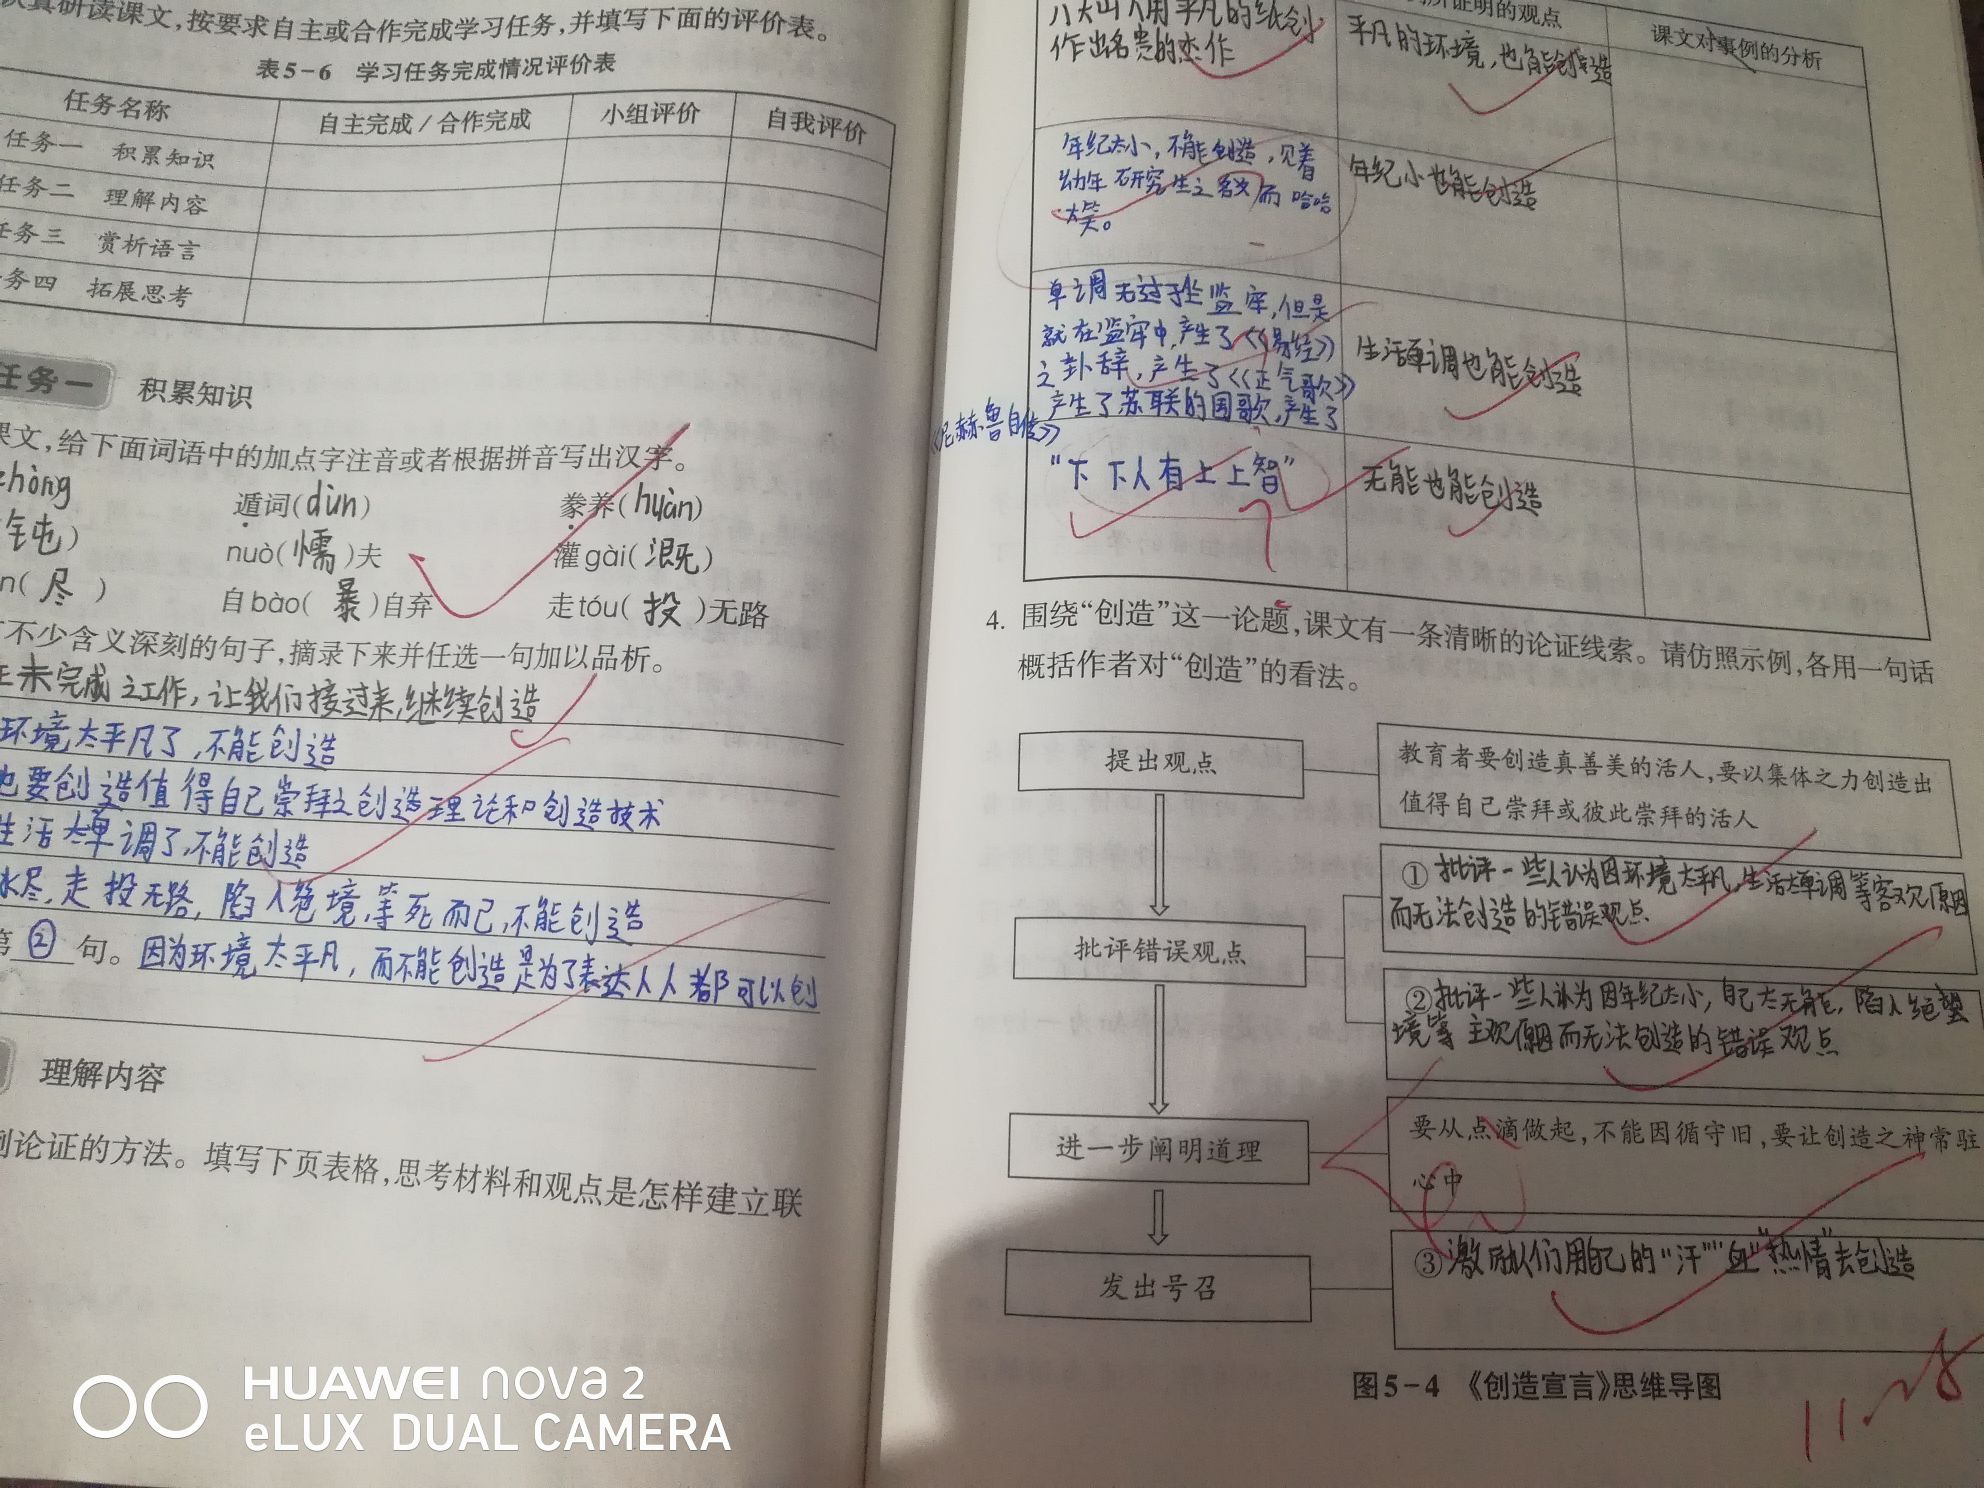 认真研读课文,按要求自主或合作完成学习任务,并填写下面的评价表。
表5-6 学习任务完成情况评价表
任务名称 自主完成/合作完成 小组评价 自我评价
任务一 积累知识
任务二 理解内容
任务三 赏析语言
务四 拓展思考
任务一 积累知识
课文,给下面词语中的加点字注音或者根据拼音写出汉字。
zhòng 遁词(dùn) 豢养(huàn)
钝) nuò(懦)夫 灌gài(溉)
n(尽) 自bào(暴)自弃 走tóu(投)无路
不少含义深刻的句子,摘录下来并任选一句加以品析。
未完成之工作,让我们接过来,继续创造
环境太平凡了,不能创造
也要创造值得自己崇拜之创造理论和创造技术
生活太单调了,不能创造
水尽,走投无路,陷入绝境,等死而已,不能创造
第②句。因为环境太平凡,而不能创造是为了表达人人都可以创
理解内容
例论证的方法。填写下页表格,思考材料和观点是怎样建立联
所证明的观点 课文对事例的分析
八大山人用平凡的纸创
作出名贵的杰作
平凡的环境,也能创造
年纪太小,不能创造,见着
幼年研究生之名而哈哈
大笑。
年纪小也能创造
单调无过于坐监牢,但是
就在监牢中,产生了《易经》
之卦辞,产生了《正气歌》
产生了苏联的国歌,产生了
《尼赫鲁自传》
生活单调也能创造
“下下人有上上智”
无能也能创造
4. 围绕“创造”这一论题,课文有一条清晰的论证线索。请仿照示例,各用一句话
概括作者对“创造”的看法。
提出观点
教育者要创造真善美的活人,要以集体之力创造出
值得自己崇拜或彼此崇拜的活人
批评错误观点
①批评一些人认为因环境太平凡,生活太单调等客观原因
而无法创造的错误观点
②批评一些人认为因年纪太小,自己太无能,陷入绝望
境等主观原因而无法创造的错误观点
进一步阐明道理
要从点滴做起,不能因循守旧,要让创造之神常驻
心中
发出号召
③激励人们用自己的“汗”“血”“热情”去创造
图5-4 《创造宣言》思维导图
11.28
HUAWEI nova 2
eLUX DUAL CAMERA